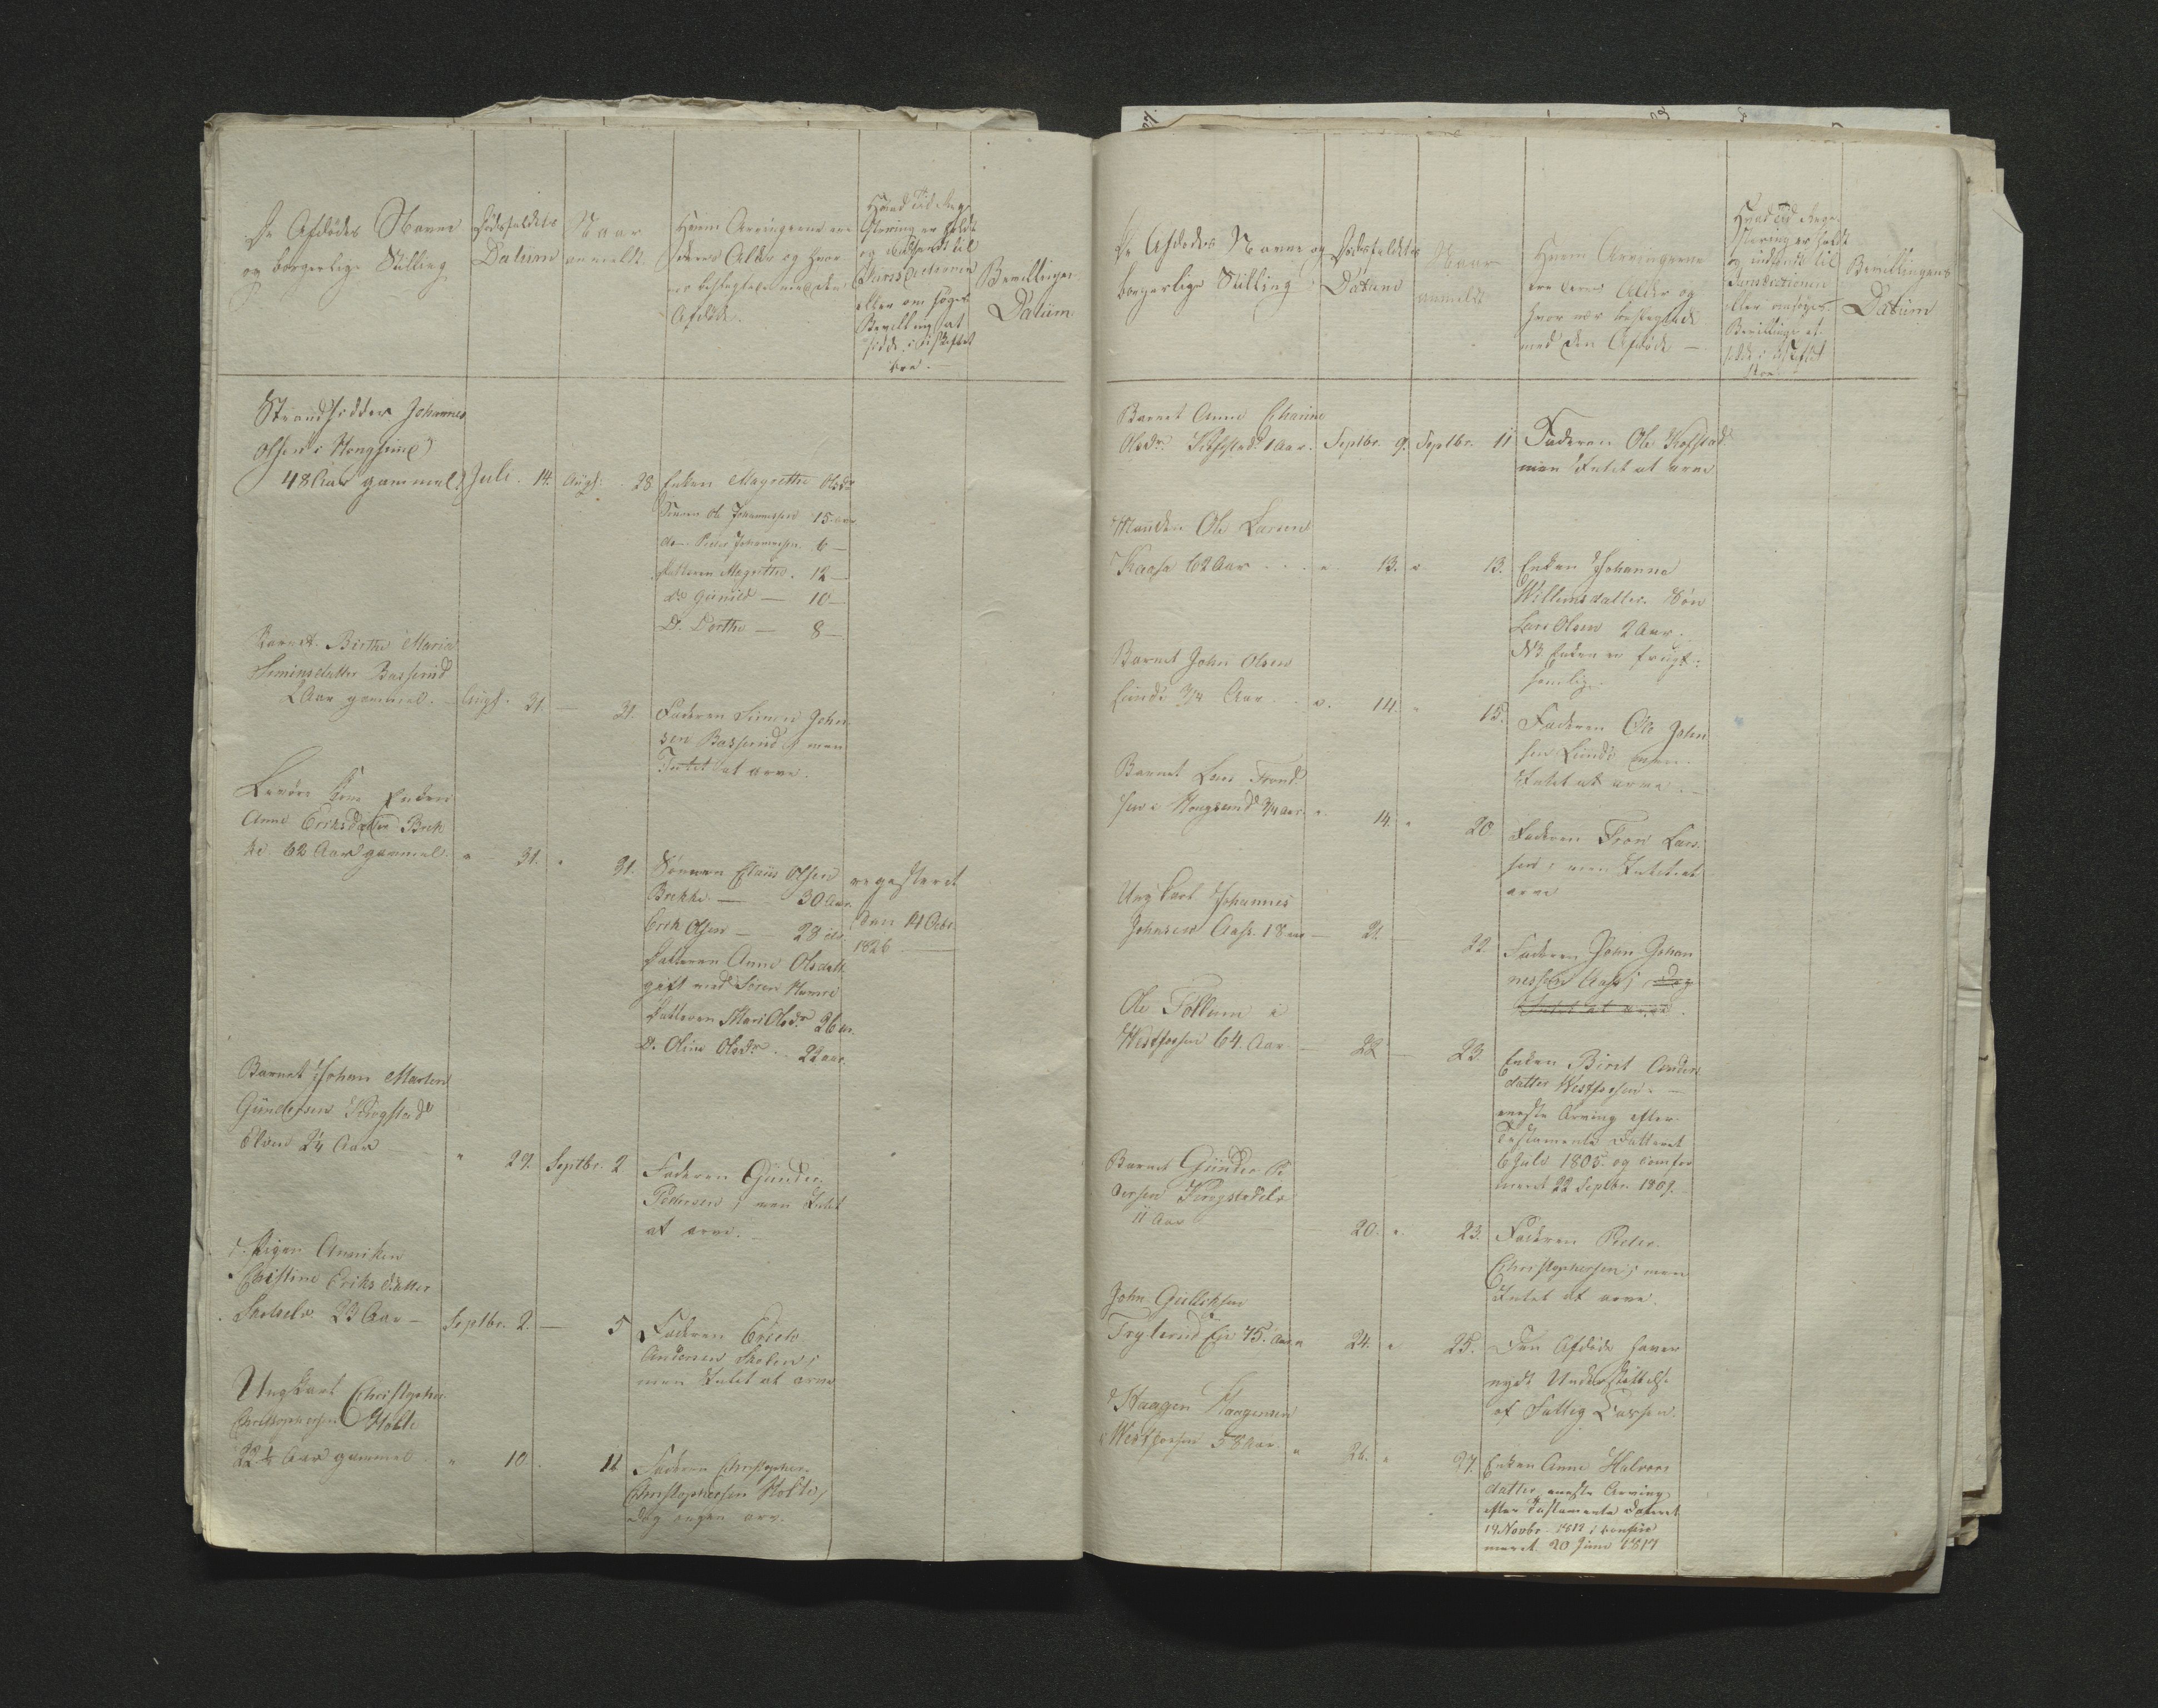 De Afdødes Navne
og borgerlige Stilling
Dødsfaldets
Datum
Naar
anmeldt
Hvem Arvingerne ere
deres Alder og hvor
nær beslægtede med den
Afdøde.
Hvad Tid Reg-
istering er holdt
og indsendt til
Jurisdictionen
eller om søges
Bevilling at
sidde i uskiftet
Boe.
Bevillingens
Datum
Strandsidder Johannes
Olsen i Hougsund
48 Aar gammel
Juli 14.
Augs. 28
Enken Magrethe Olsdr
Sønnen Ole Johannessen 15 aar
do Peder Johannessen 6 —
Datteren Magrethe. 12 —
do Gunild — 10 —
D. Dorthe — 8 —
Barnet Birthe Maria
Simensdatter Basserud
2 Aar gammel.
Augs. 31.
— 31.
Faderen Simen John
sen Basserud, men
Intet at arve.
Enken
Anne Eriksdatter Brek
ke 62 Aar gammel.
" 31.
" 31.
Sønnen Claus Olsen
Brekke — 30 Aar.
Erik Olsen — 28 do
Datteren Anne Olsdatt.
gift med Søren Hamre
Datteren Mari Olsdr 26 aar
D. Oline Olsdr. 22 aar.
registeret
den 14 Octbr.
1826
Barnet Johan Marten
Gundersen Kingstad
Elven 2¼ Aar
" 29.
Septbr. 2
Faderen Gunder
Pedersen, men Intet
at arve.
Pigen Anniken
Christine Eriksdatter
Skotselv 23 Aar —
Septbr. 2.
— 5
Faderen Erich
Andersen Skotselv;
men Intet at arve
Ungkarl Christopher
Christophersen Holte
22½ Aar gammel
" 10.
11
Faderen Christopher
Christophersen Holte,
dog ingen arv.
De Afdødes Navne og
borgerlige Stilling
Dødsfaldets
Datum
Naar
anmeldt
Hvem Arvingerne
ere deres Alder og
hvor nær beslægtede
med den Afdøde —
Hvad Tid Regi-
stering er holdt
og indsendt til
Jurisdictionen
eller om søges
Bevilling at
sidde i uskiftet
Boe
Bevillingens
Datum
Barnet Anne Charine
Olsdr. Kolstad 1 Aar.
Septbr. 9.
Septbr. 11
Faderen Ole Kolstad
men Intet at arve
Manden Ole Larsen
Kaasa 62 Aar
" 13.
" 13.
Enken Johanne
Willumsdatter. Søn
Lars Olsen 2 Aar.
NB Enken er frugt-
sommelig.
Barnet John Olsen
Lunde ¾ Aar
" 14.
" 15.
Faderen Ole John
sen Lunde men
Intet at arve.
Barnet Lars Trond
sen i Hougsund ¾ aar.
" 14
" 20
Faderen Tron Lars-
sen, men Intet at
arve
Ungkarl Johannes
Johnsen Aass. 18 aar
— 21.
— 22
Faderen John Johan
nessen Aass; dog
Intet at arve.
Ole Tollum i
Westfossen 64. Aar
— 22
— 23.
Enken Birit Anders
datter Westfossen. —
eneste Arving efter
Testamente datteret
6 Juli 1805. og comfir
meret 22 Septbr. 1809.
Barnet Gunder Pe
dersen Kingstadelv
11 Aar
20.
" 23.
Faderen Peder
Christophersen; men
Intet at arve.
John Gulliksen
Tryterud Eje 75. Aar
" 24.
" 25.
Den Afdøde haver
nydt Understøttelse
af Fattig Cassen.
Haagen Haagensen
Westfossen 58 Aar
" 26.
" 27.
Enken Anne Halvors
datter eneste Arving
efter Testamente dateret
19 Novbr. 1812; confir
meret 20 Juni 1817